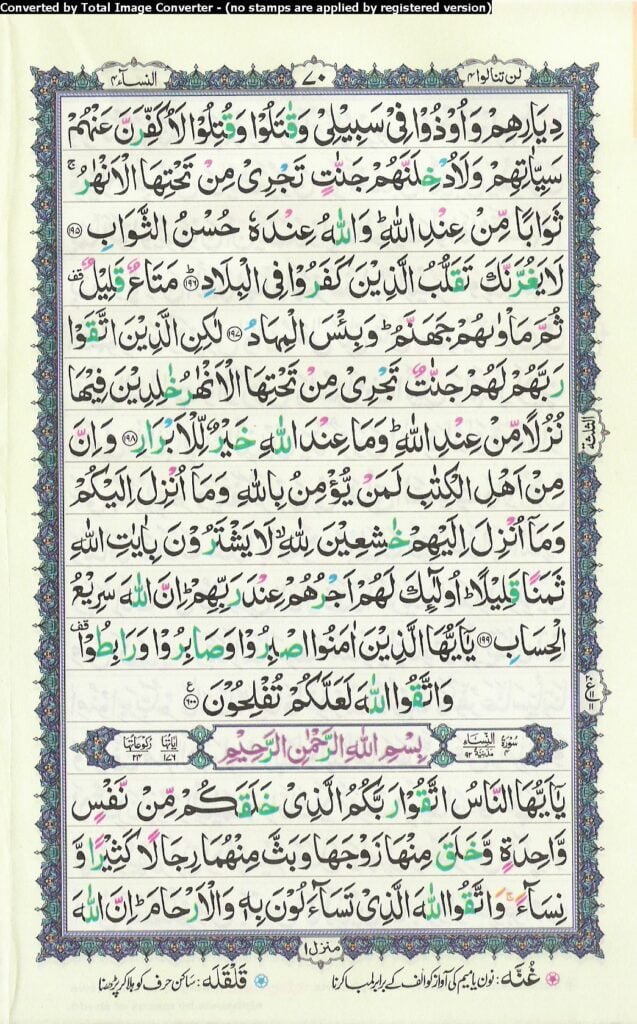 Converted by Total Image Converter - (no stamps are applied by registered version)
لن تنالوا ۴ ۷۰ النسآء ۴
دِيَارِهِمْ وَاُوْذُوْا فِيْ سَبِيْلِيْ وَقٰتَلُوْا وَقُتِلُوْا لَاُكَفِّرَنَّ عَنْهُمْ
سَيِّاٰتِهِمْ وَلَاُدْخِلَنَّهُمْ جَنّٰتٍ تَجْرِيْ مِنْ تَحْتِهَا الْاَنْهٰرُ ۚ
ثَوَابًا مِّنْ عِنْدِ اللّٰهِ ؕ وَاللّٰهُ عِنْدَهٗ حُسْنُ الثَّوَابِ ﴿۱۹۵﴾
لَا يَغُرَّنَّكَ تَقَلُّبُ الَّذِيْنَ كَفَرُوْا فِي الْبِلَادِ ؕ ﴿۱۹۶﴾ مَتَاعٌ قَلِيْلٌ ۟ قف
ثُمَّ مَاْوٰىهُمْ جَهَنَّمُ ؕ وَبِئْسَ الْمِهَادُ ﴿۱۹۷﴾ لٰكِنِ الَّذِيْنَ اتَّقَوْا
رَبَّهُمْ لَهُمْ جَنّٰتٌ تَجْرِيْ مِنْ تَحْتِهَا الْاَنْهٰرُ خٰلِدِيْنَ فِيْهَا
نُزُلًا مِّنْ عِنْدِ اللّٰهِ ؕ وَمَا عِنْدَ اللّٰهِ خَيْرٌ لِّلْاَبْرَارِ ﴿۱۹۸﴾ وَاِنَّ
مِنْ اَهْلِ الْكِتٰبِ لَمَنْ يُّؤْمِنُ بِاللّٰهِ وَمَاۤ اُنْزِلَ اِلَيْكُمْ
وَمَاۤ اُنْزِلَ اِلَيْهِمْ خٰشِعِيْنَ لِلّٰهِ ۙ لَا يَشْتَرُوْنَ بِاٰيٰتِ اللّٰهِ
ثَمَنًا قَلِيْلًا ؕ اُولٰٓئِكَ لَهُمْ اَجْرُهُمْ عِنْدَ رَبِّهِمْ ؕ اِنَّ اللّٰهَ سَرِيْعُ
الْحِسَابِ ﴿۱۹۹﴾ يٰۤاَيُّهَا الَّذِيْنَ اٰمَنُوا اصْبِرُوْا وَصَابِرُوْا وَرَابِطُوْا ۟ قف
وَاتَّقُوا اللّٰهَ لَعَلَّكُمْ تُفْلِحُوْنَ ﴿۲۰۰﴾ ع
سُوْرَةُ النِّسَآءِ ۴ مَدَنِيَّةٌ ۹۲ بِسْمِ اللّٰهِ الرَّحْمٰنِ الرَّحِيْمِ اٰيَاتُهَا ۱۷۶ رُكُوْعَاتُهَا ۲۴
يٰۤاَيُّهَا النَّاسُ اتَّقُوْا رَبَّكُمُ الَّذِيْ خَلَقَكُمْ مِّنْ نَّفْسٍ
وَّاحِدَةٍ وَّخَلَقَ مِنْهَا زَوْجَهَا وَبَثَّ مِنْهُمَا رِجَالًا كَثِيْرًا وَّ
نِسَآءً ۚ وَاتَّقُوا اللّٰهَ الَّذِيْ تَسَآءَلُوْنَ بِهٖ وَالْاَرْحَامَ ؕ اِنَّ اللّٰهَ
منزل ۱
غُنَّه: نون یا میم کی آواز کو الف کے برابر لمبا کرنا قَلْقَلَه: ساکن حرف کو ہلا کر پڑھنا